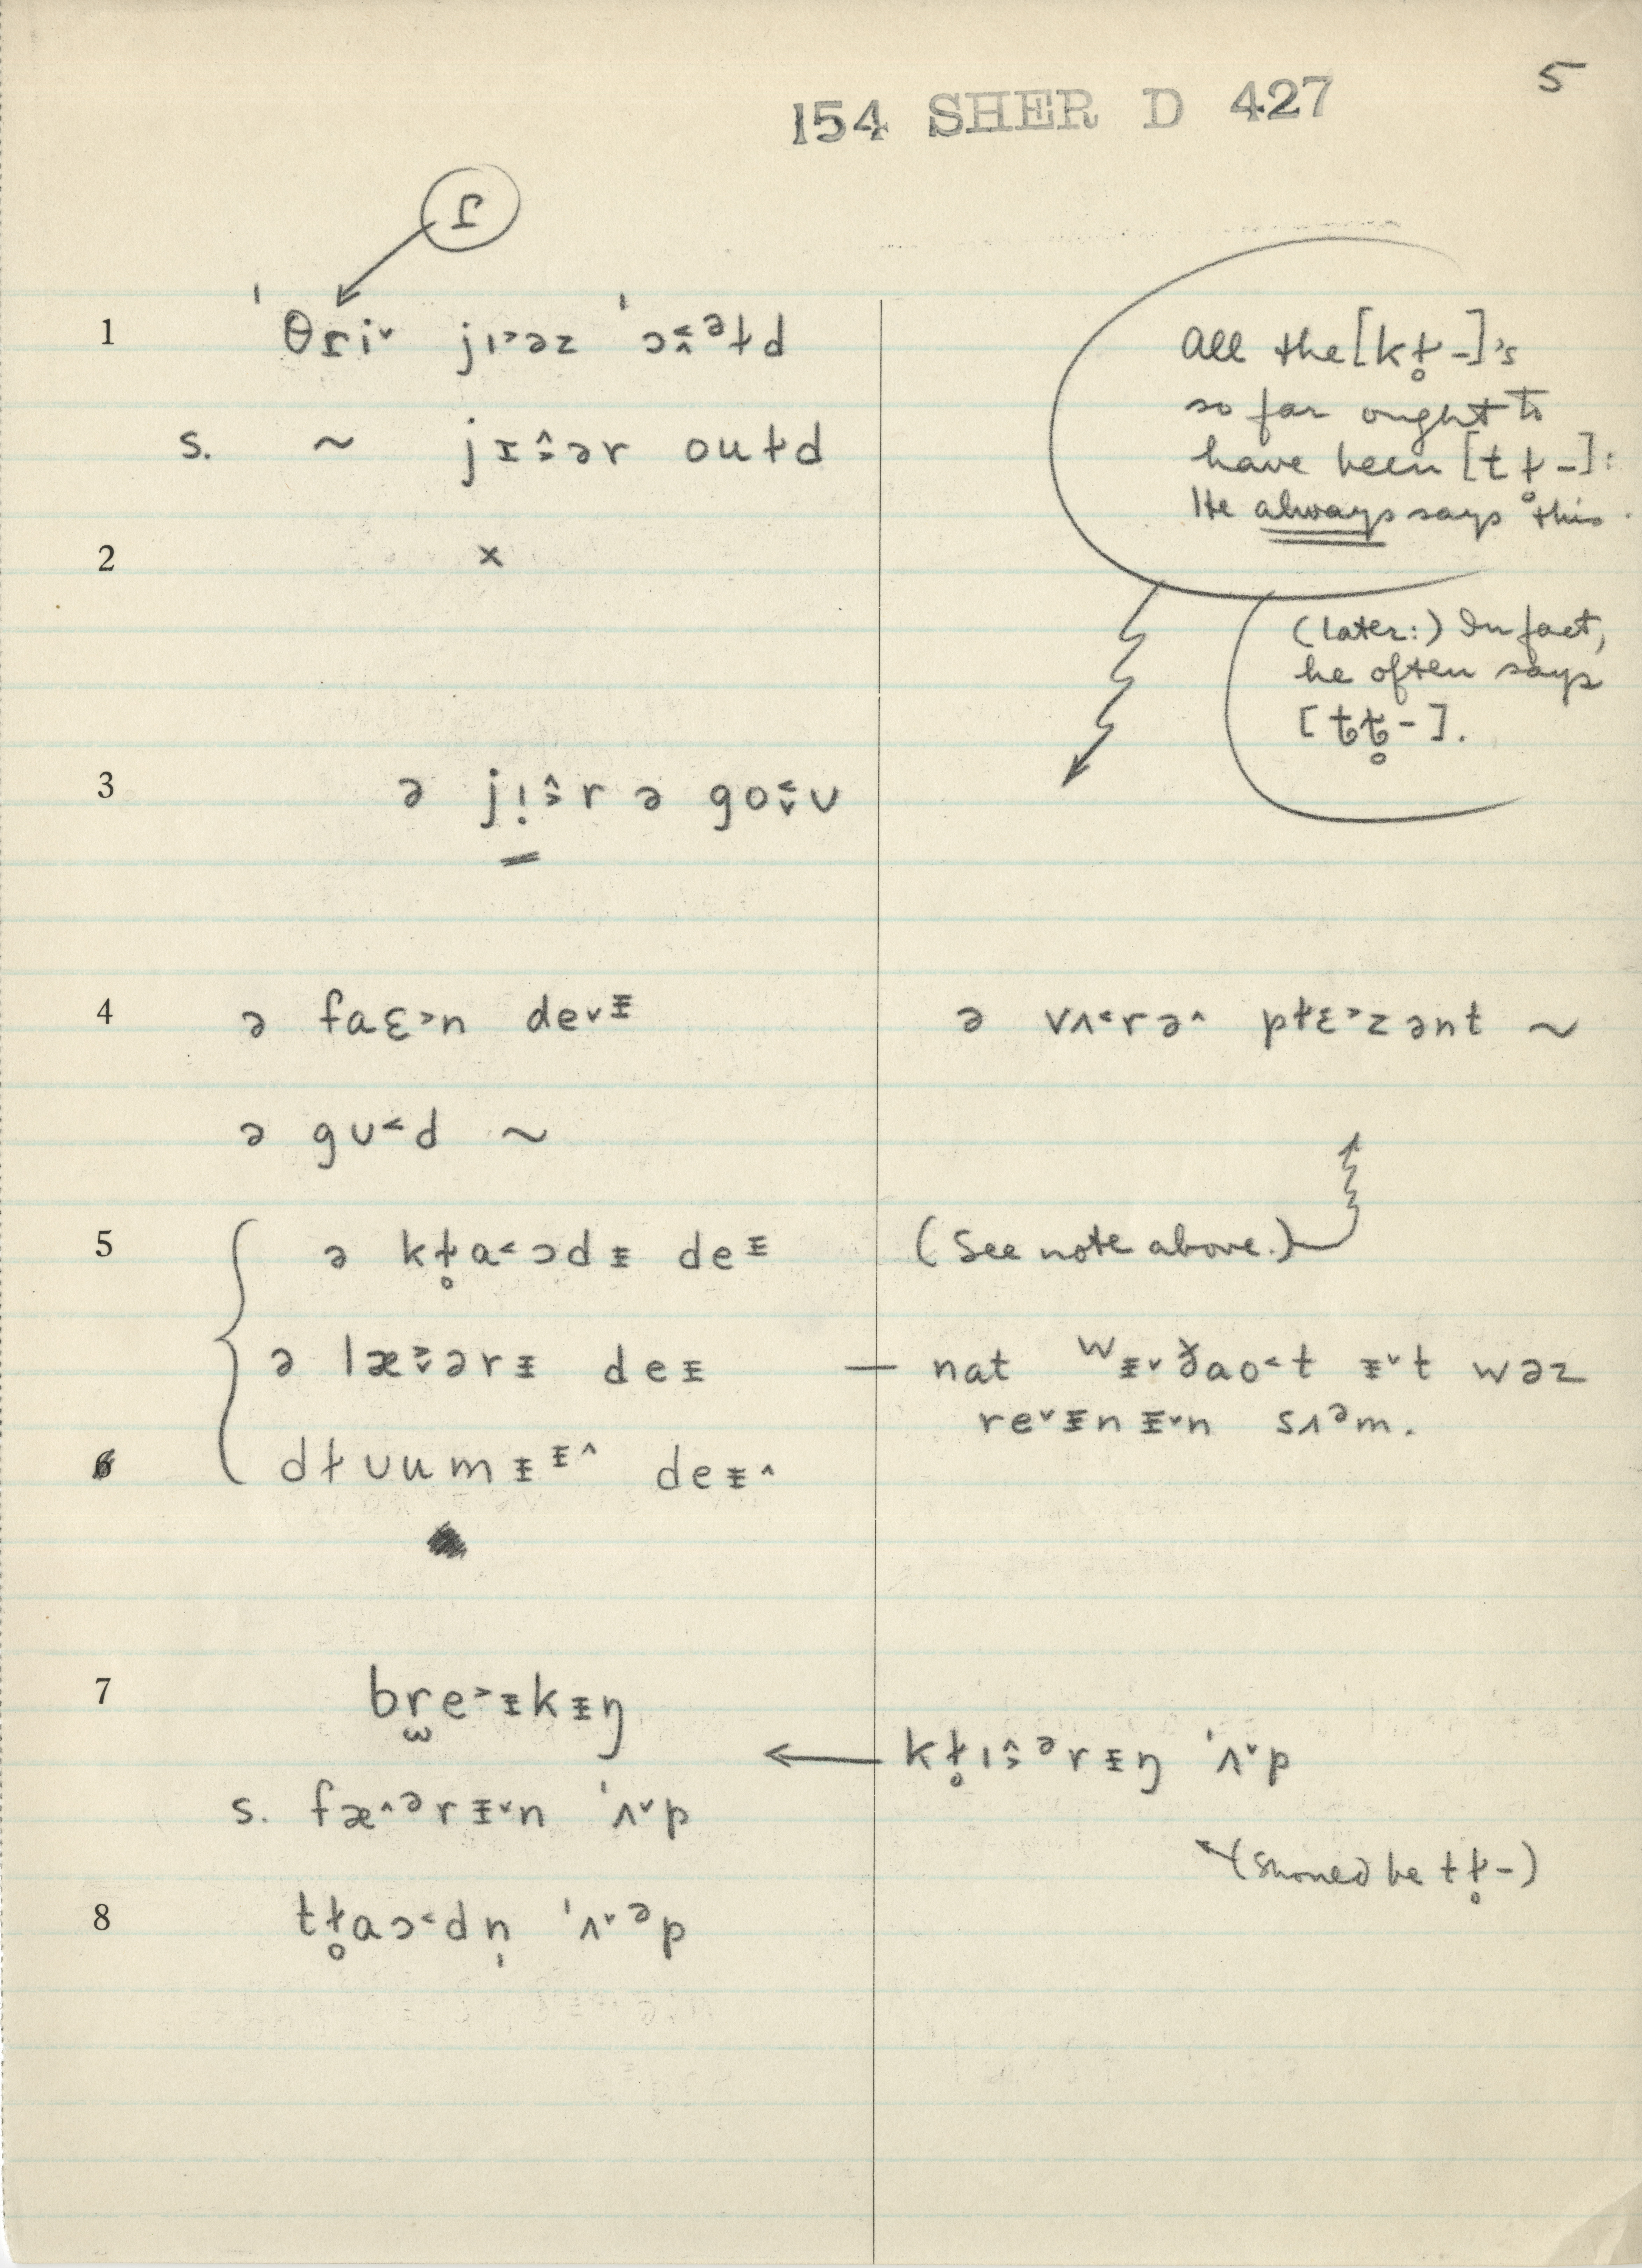 5
154 SHER D 427
ɾ
1 ˈθɾi˅ jɪ˃əz ˈɔ˂̭ᵊɫd
s. ~ jɪ̵˄˃ər ouɫd
2 ×
3 ə jɪ̣˄˃r ə go˂˅ʊ
4 ə faɛ˃n de˅ᵻ
ə gʊ˂d ~
5 ə kɫ̥a˂ɔdᵻ deᵻ
ə læ˃˅ərᵻ deᵻ
6 dɫʊumᵻᵻ˄ deᵻ˄
7 br̫e˃ᵻkᵻŋ
s. fæ˄ᵊrᵻ˅n ˈʌ˅p
8 tɫ̥aɔ˂dn̩ ˈʌ˅ᵊp
All the [kɫ̥-]'s
so far ought to
have been [tɫ̥-]:
He always says this.
(Later:) In fact,
he often says
[ƫƫ̥-].
ə vʌ˂rə˄ pɫɛ˃zənt ~
(See note above.)
— nat wᵻ˅ðao˂t ᵻ˅t wəz
re˅ᵻnᵻ˅n sʌᵊm.
kɫ̥ɪ˄˃ᵊrᵻŋ ˈʌ˅p
(Should be tɫ̥-)